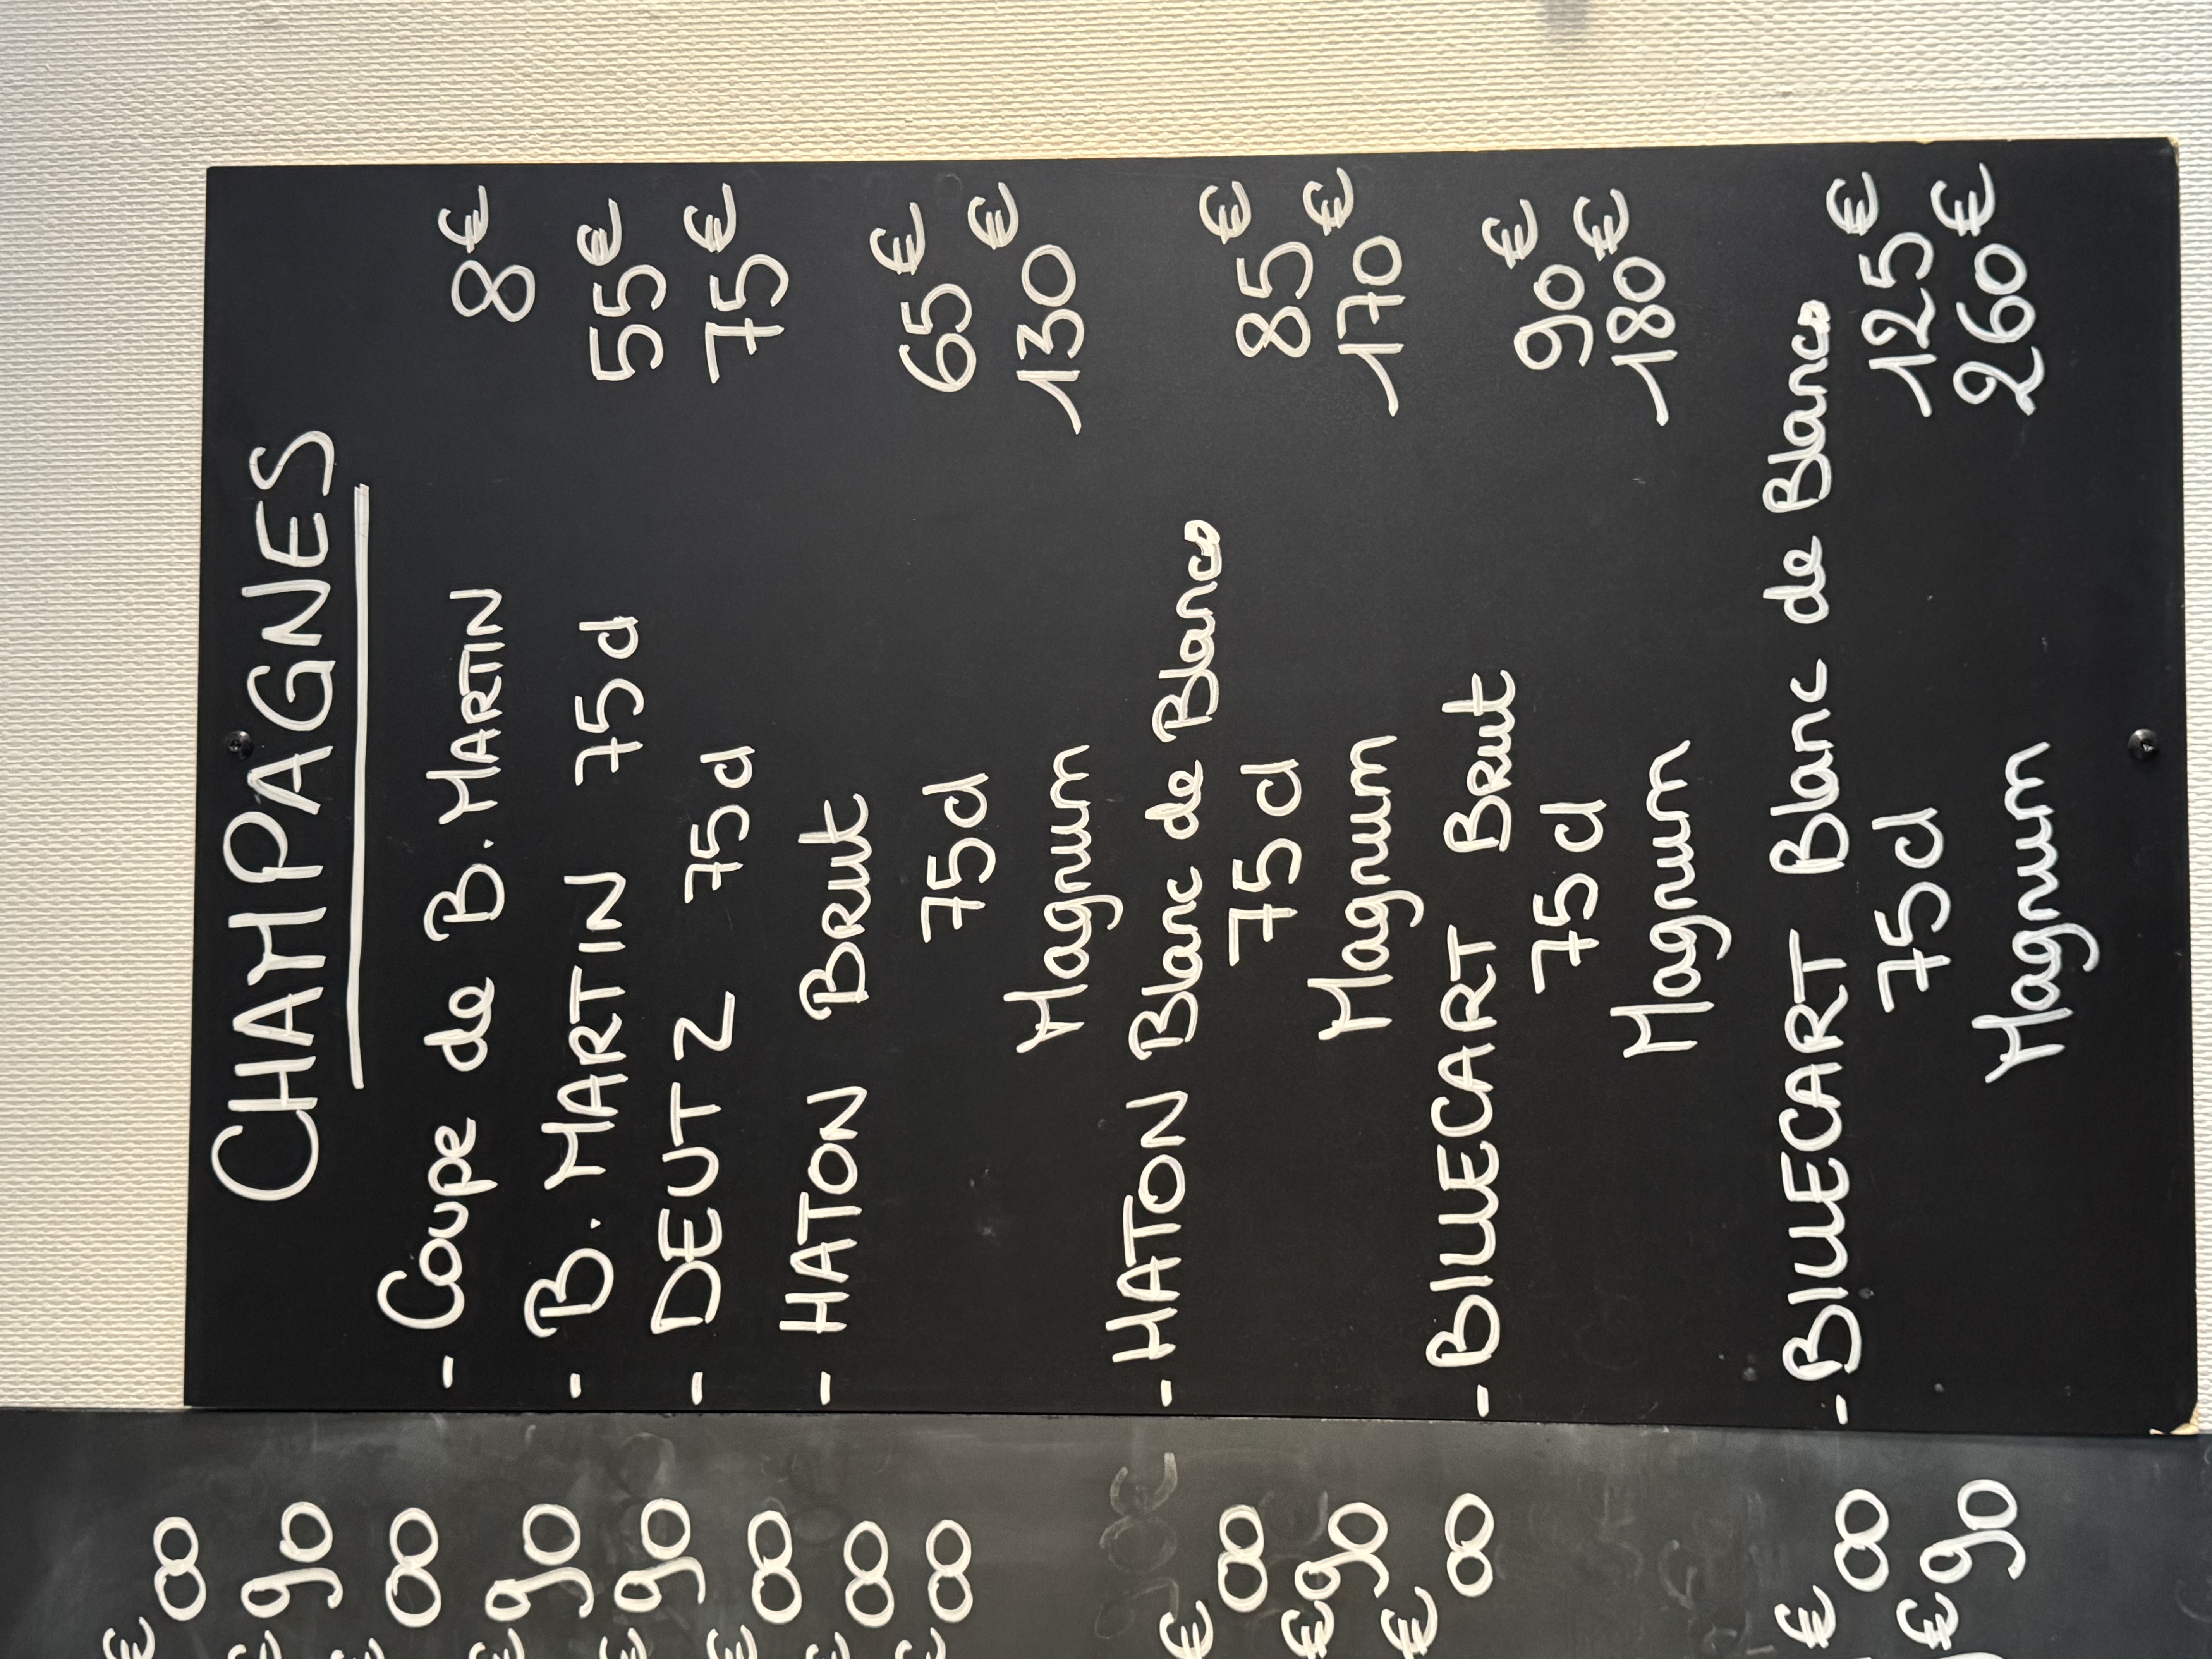 CHAMPAGNES
- Coupe de B. MARTIN 8€
- B. MARTIN 75cl 55€
- DEUTZ 75cl 75€
- HATON Brut
75cl 65€
Magnum 130€
- HATON Blanc de Blancs
75cl 85€
Magnum 170€
- BILLECART Brut
75cl 90€
Magnum 180€
- BILLECART Blanc de Blancs
75cl 125€
Magnum 260€
€00
€90
€00
€90
€90
€00
€00
€00
€00
€90
€00
€00
€90